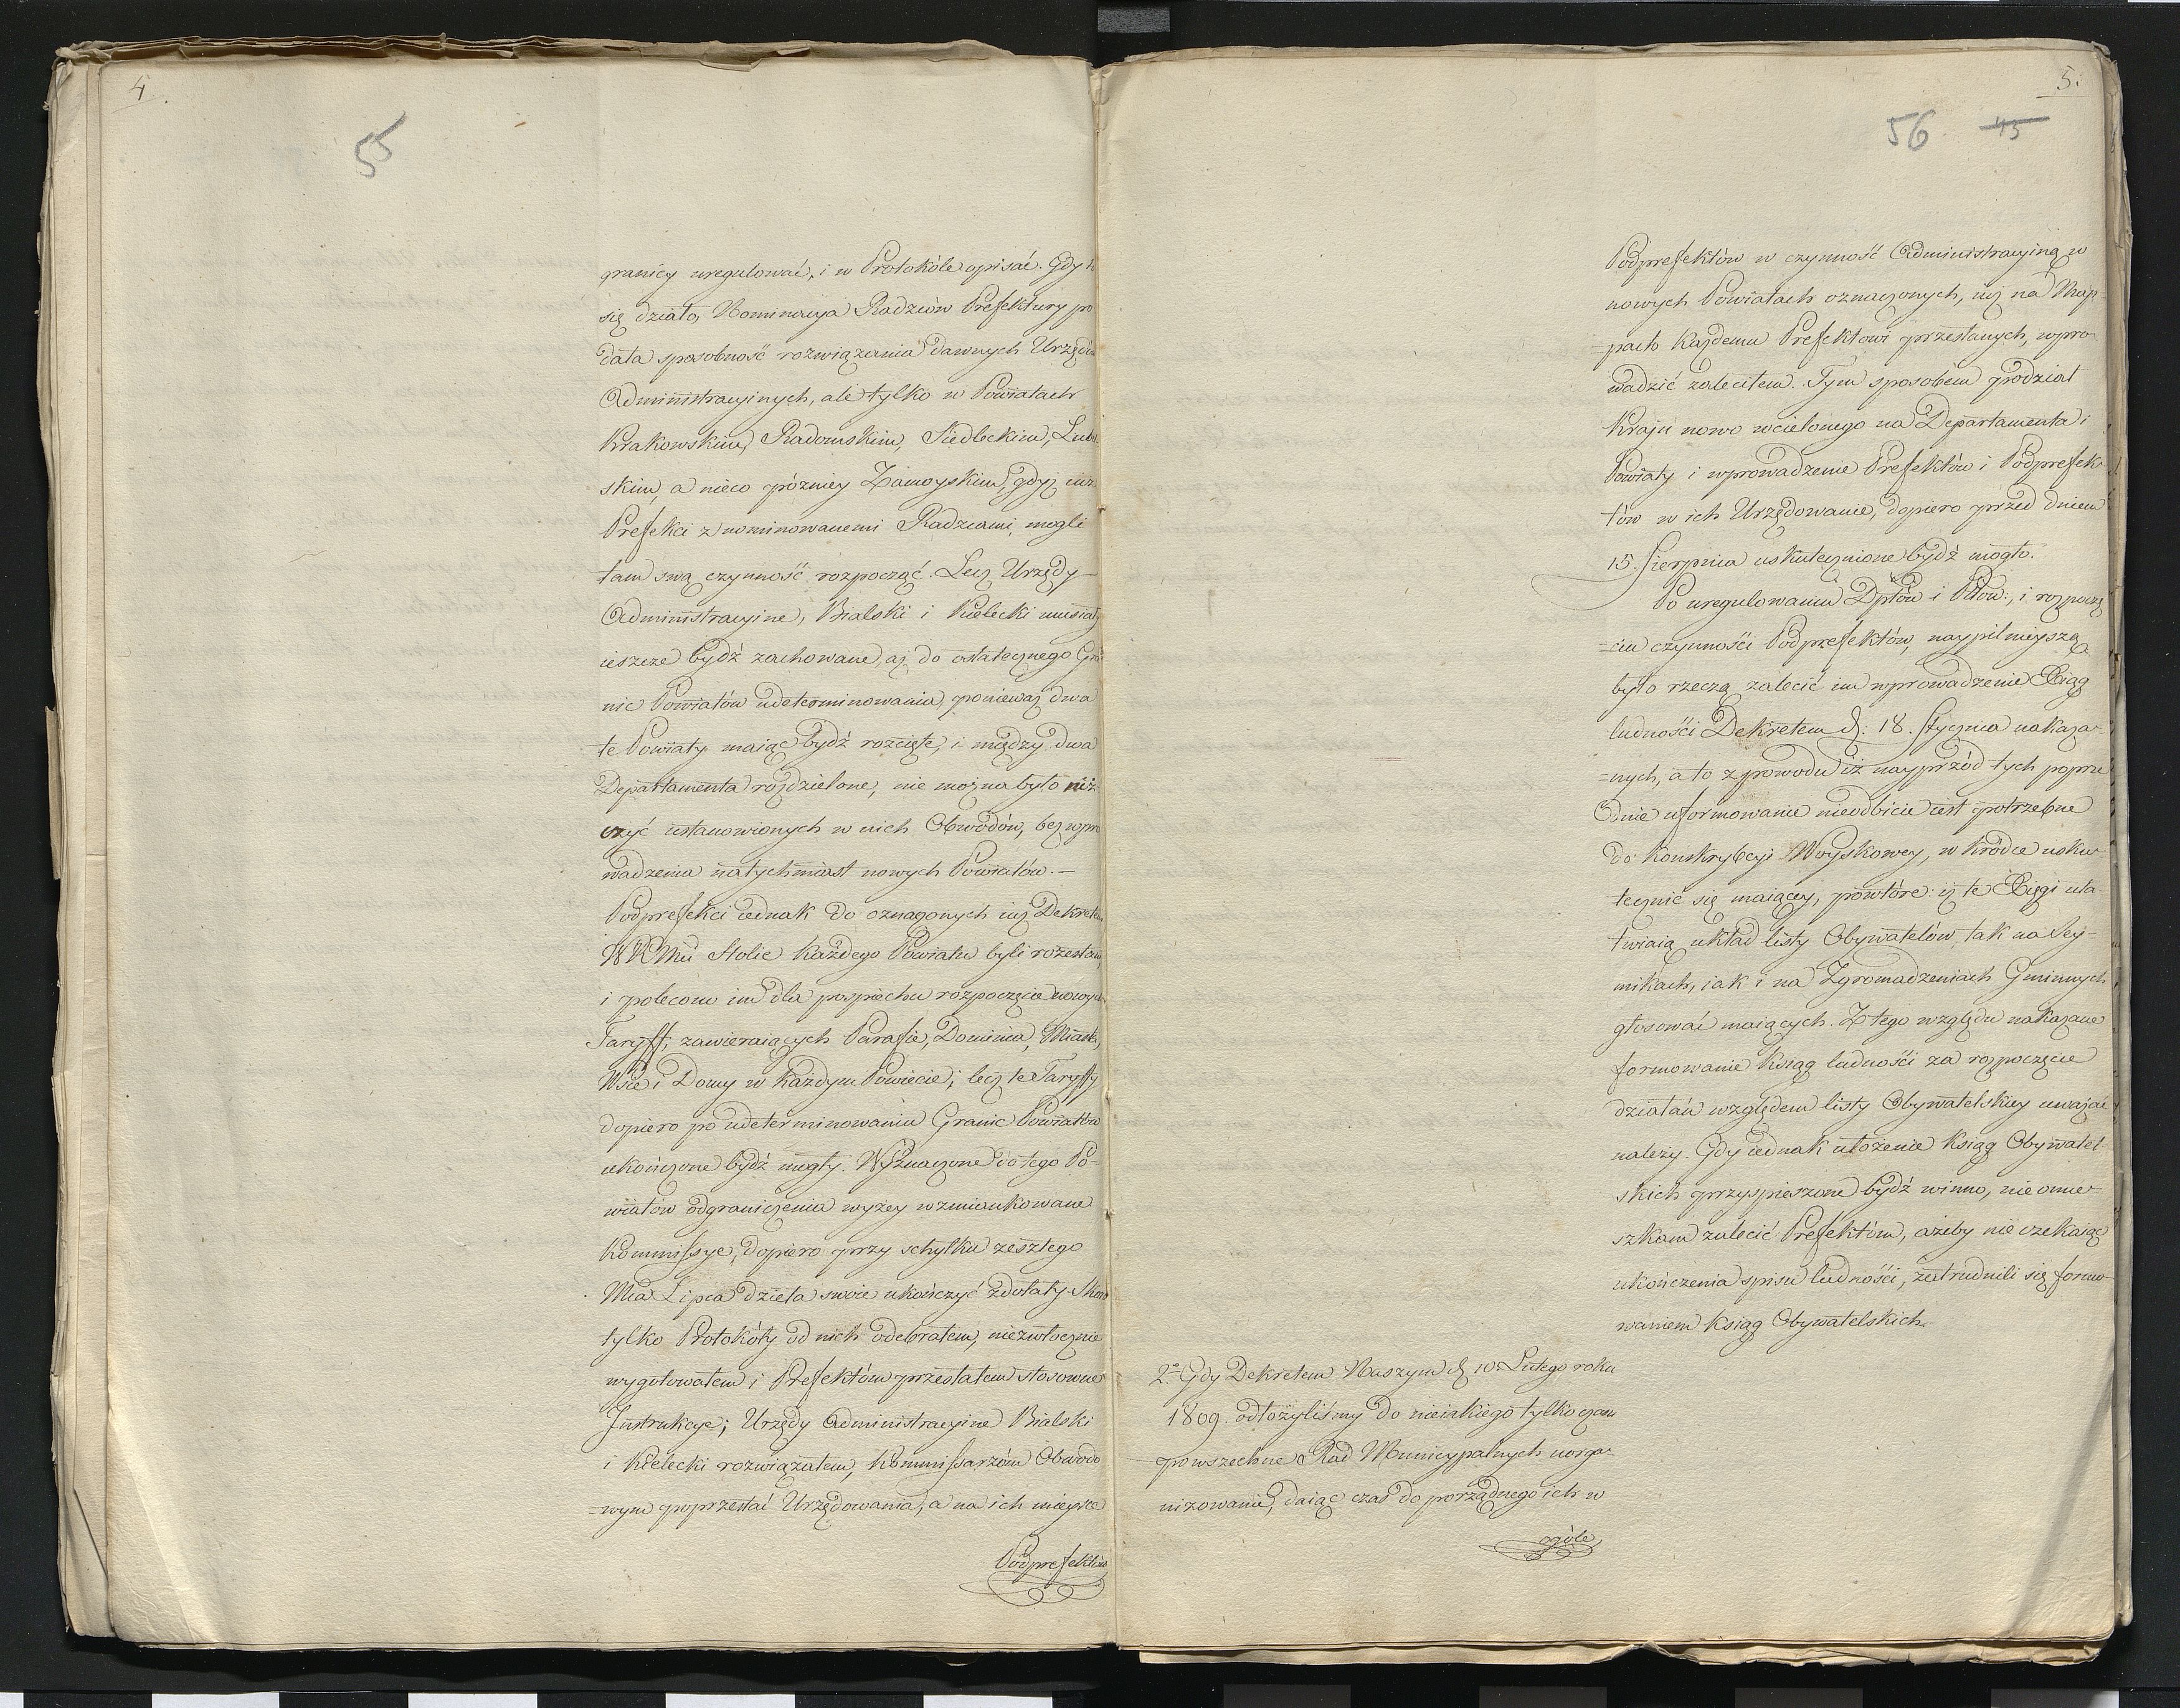 4.
55
granicy uregulować, i w Protokóle opisać. Gdy to
się działo, Nominacya Radzców Prefektury po
dała sposobność rozwiązania dawnych Urzędów
Administracyinych, ale tylko w Powiatach
Krakowskim, Radomskim, Siedleckim, Lubel
skim, a nieco późniey Zamoyskim, gdyż
Prefekci z nominowanemi Radzcami, mogli
tam swą czynność rozpocząć. Lecz Urzędy
Administracyine, Bialski i Kielecki musiały
ieszcze bydź zachowane, aż do ostatecznego Gra
nic Powiatów udeterminowania, ponieważ dwa
te Powiaty maiąc bydź rozcięte, i między dwa
Departamenta rozdzielone, nie można było niż
czyć ustanowionych w nich Obwodów, bez wpro
wadzenia natychmiast nowych Powiatów.—
Podprefekci iednak do oznaczonych iuż Dekretem
WKMci Stolic każdego Powiatu byli rozesłani,
i polecono im dla pospiechu rozpoczęcie nowych
Taryff, zawieraiących Parafie, Dominia, Miasta,
Wsie i Domy w każdym Powiecie; lecz te Taryffy
dopiero po udeterminowaniu Granic Powiatów
ukończone bydź mogły. Wyznaczone do tego Po-
wiatów odgraniczenia wyżey wzmiankowane
Kommissye, dopiero przy schyłku zeszłego
Mca Lipca dzieła swoie ukończyć zdołały. Skoro
tylko Protokóły od nich odebrałem, niezwłocznie
wygotowałem i Prefektóm przesłałem stosowne
Instrukcye; Urzędy Administracyine Bialski
i Kielecki rozwiązałem, Kommissarzóm Obwodo
-wym poprzestać Urzędowania, a na ich mieysce
Podprefektów
5.
56 45
Podprefektów w czynność Administracyiną w
nowych Powiatach oznaczonych, iuż na Map-
-pach każdemu Prefektowi przesłanych, wpro-
wadzić zaleciłem. Tym sposobem podział
Kraju nowo wcielonego na Departamenta i
Powiaty i wprowadzenie Prefektów i Podprefek-
tów w ich Urzędowanie, dopiero przed dniem
15. Sierpnia uskutecznione bydź mogło.
Po uregulowaniu Dptów i Ptów:, i rozpoczę
-ciu czynności Podprefektów, naypilnieyszą
było rzeczą zalecić im wprowadzenie Xiąg
ludności Dekretem d: 18. Stycznia nakaza-
-nych, a to z powodu iż nayprzód tych poprze
dnie uformowanie nieodbicie iest potrzebne
do Konskrypcyi Woyskowey, w krótce usku-
tecznić się maiącey, powtóre: iż te Xięgi uła-
twiaią układ listy Obywatelów, tak na Sey-
mikach, iak i na Zgromadzeniach Gminnych
głosować maiących. Z tego względu nakazane
formowanie Ksiąg ludności za rozpoczęcie
działań względem listy Obywatelskiey uważać
należy. Gdy iednak ułożenie Ksiąg Obywatel-
skich przyspieszone bydź winno, nie omie-
szkam zalecić Prefektóm, ażeby nie czekaiąc
ukończenia spisu ludności, zatrudnili się formo-
waniem Ksiąg Obywatelskich.
2° Gdy Dekretem Naszym d 10 Lutego roku
1809. odłożyliśmy do nieiakiego tylko czasu
powszechne Rad Municypalnych uorga-
nizowanie, daiąc czas do porządnego ich w
ogóle